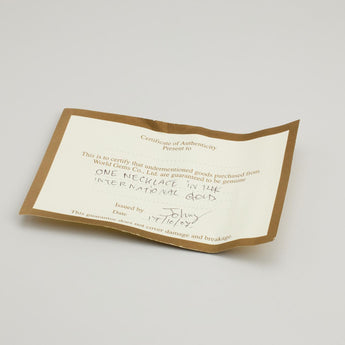 Certificate of Authenticity
Present to
This is to certify that undermentioned goods purchased from
World Gems Co., Ltd. are guaranteed to be genuine
ONE NECKLACE IN THE
INTERNATIONAL GOLD
Issued by
Date
This guarantee does not cover damage and breakage.